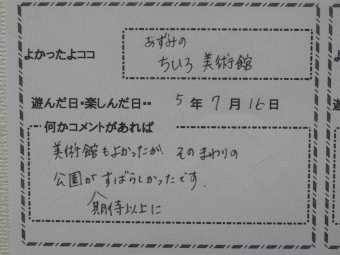 よかったよココ
あずみの
ちひろ美術館
遊んだ日・楽しんだ日・・ 5年7月16日
何かコメントがあれば
美術館もよかったが、そのまわりの
公園がすばらしかったです。
期待以上に